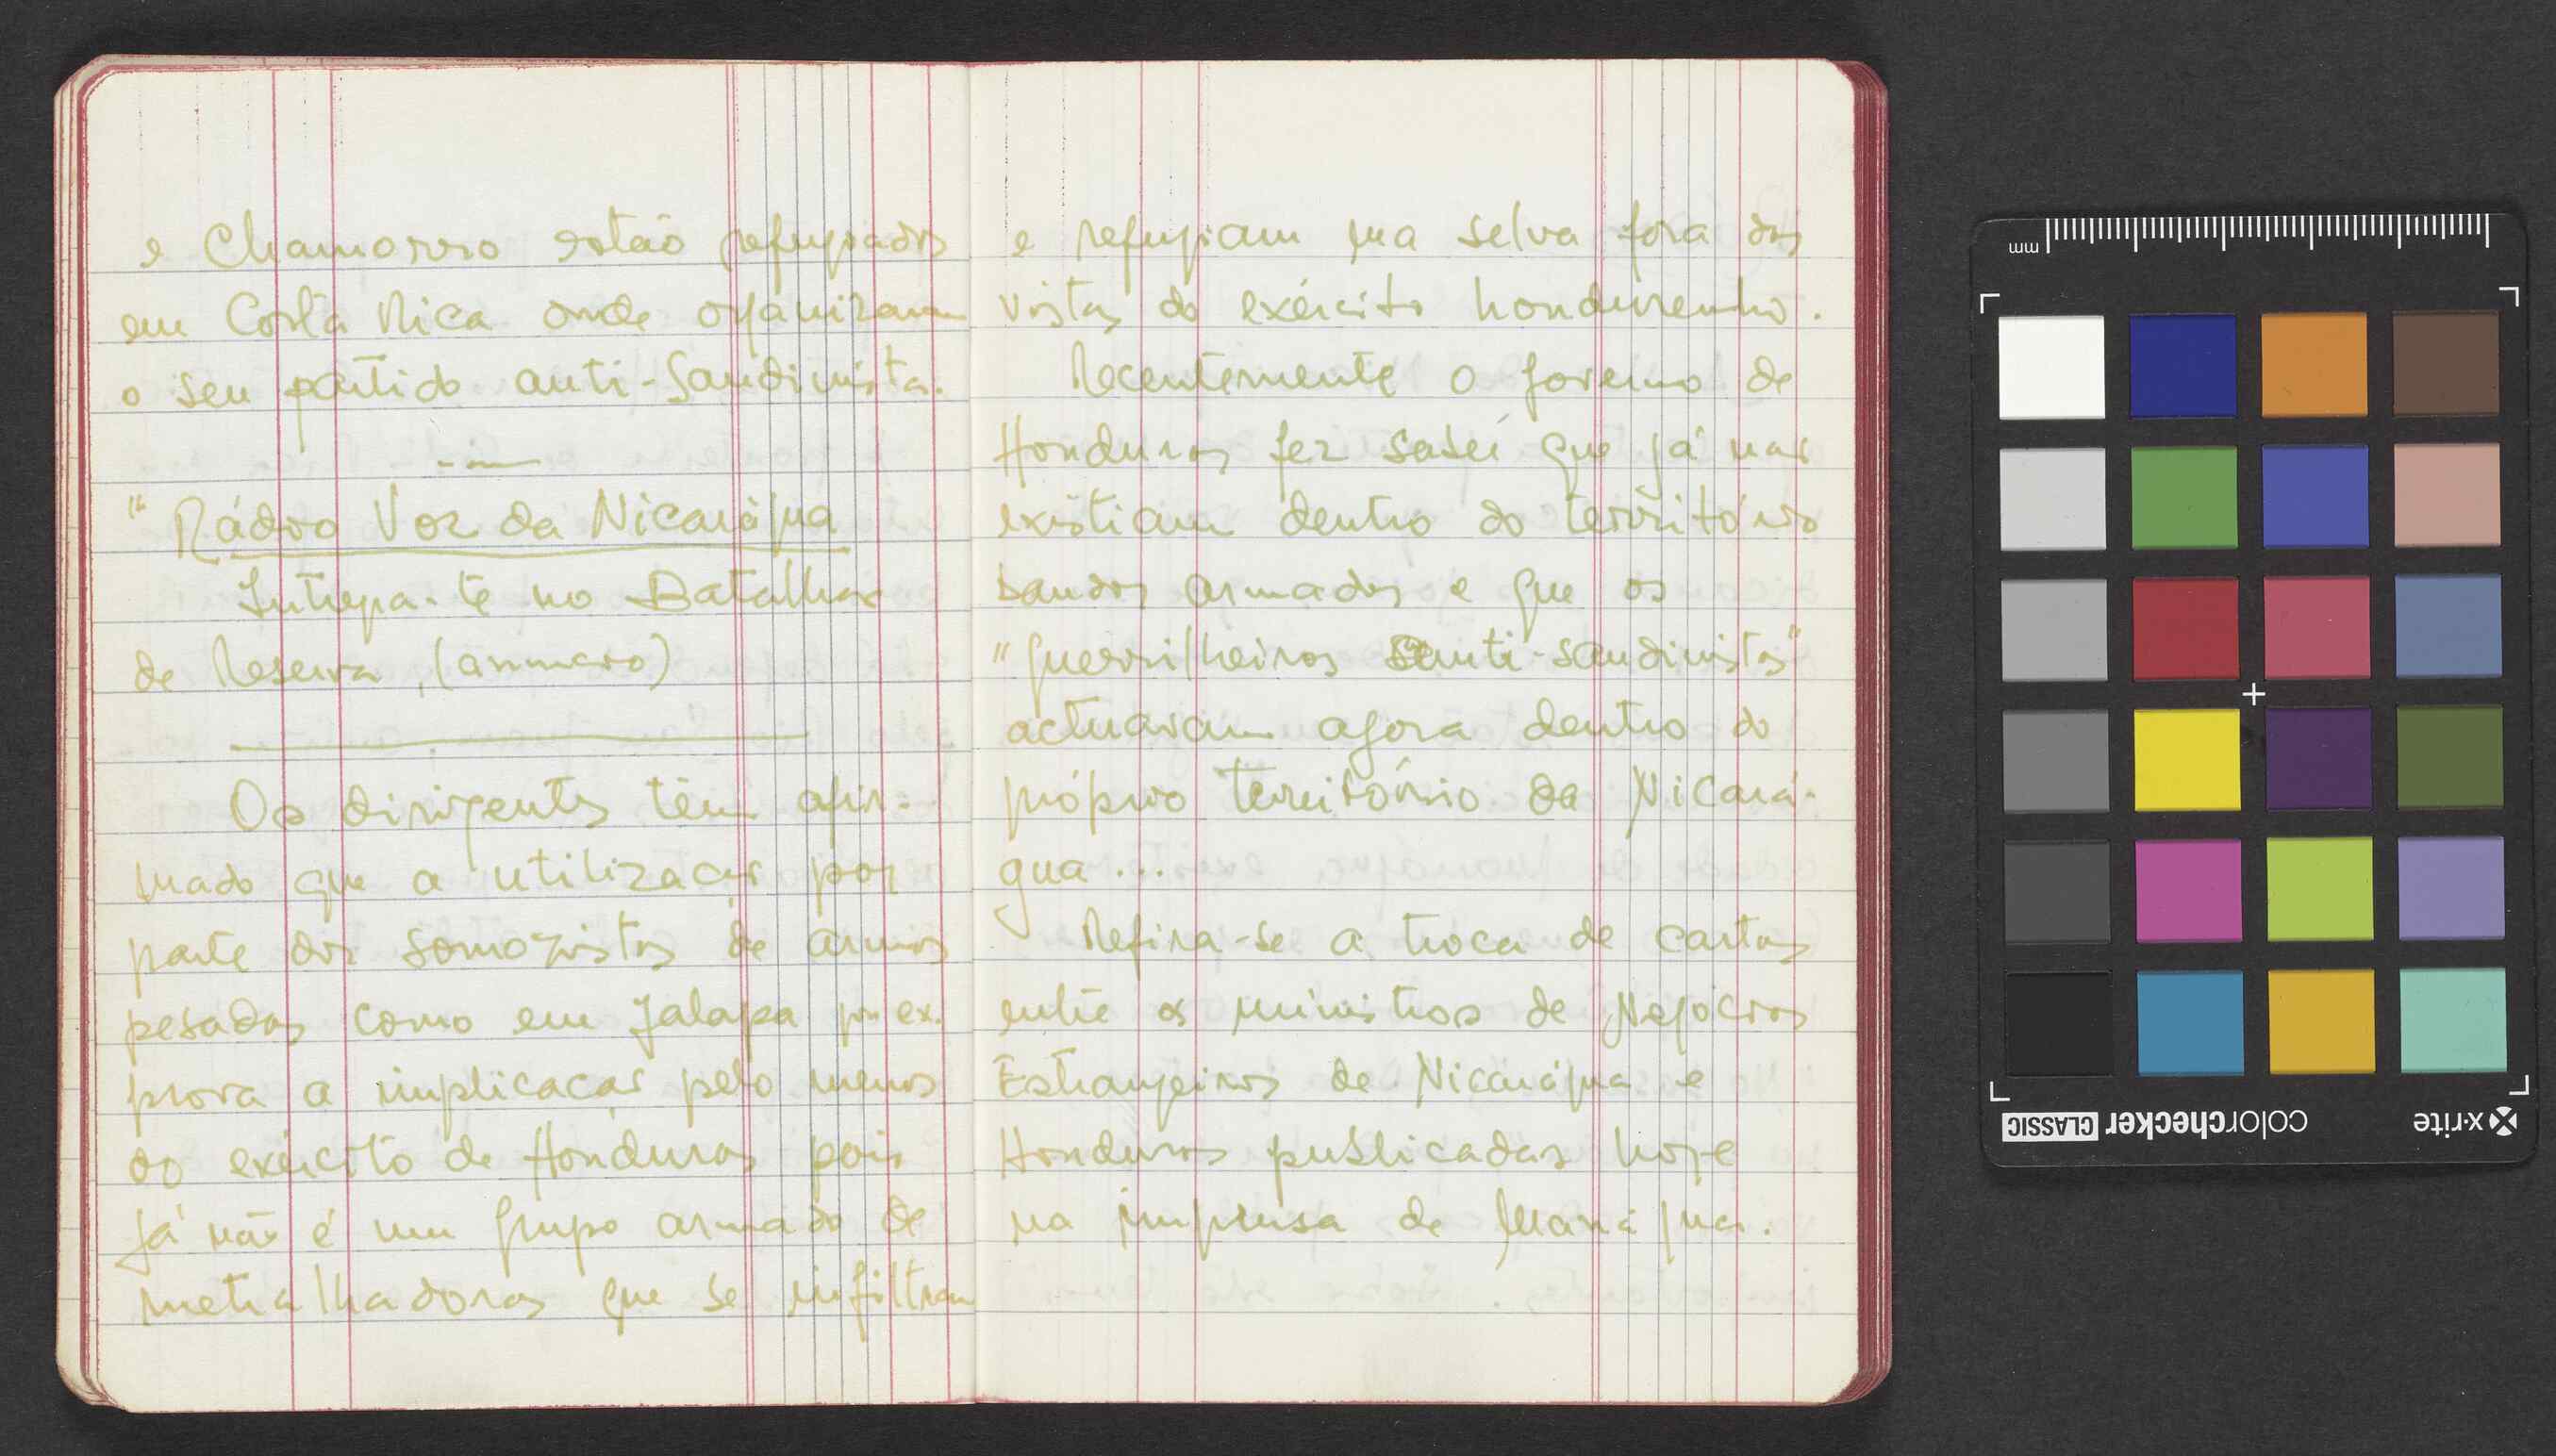 e Chamorro estão refugiados
em Costa Rica onde organizam
o seu partido anti-Sandinista.
"Rádio Voz da Nicarágua
Integra-te no Batalhão
de Reserva, (anuncio)
Os dirigentes têm afir-
mado que a utilização por
parte dos somozistas de armas
pesadas como em Jalapa por ex.
prova a implicação pelo menos
do exército de Honduras pois
já não é um grupo armado de
metralhadoras que se infiltram
e refugiam na selva fora das
vistas do exército hondurenho.
Recentemente o governo de
Honduras fez saber que já não
existiam dentro do território
bandos armados e que os
"guerrilheiros anti-sandinistas"
actuavam agora dentro do
próprio território da Nicará-
gua ...
Refira-se a troca de cartas
entre os ministros de Negócios
Estrangeiros de Nicarágua e
Honduras publicadas hoje
na imprensa de Manágua.
mm
colorchecker CLASSIC
x-rite